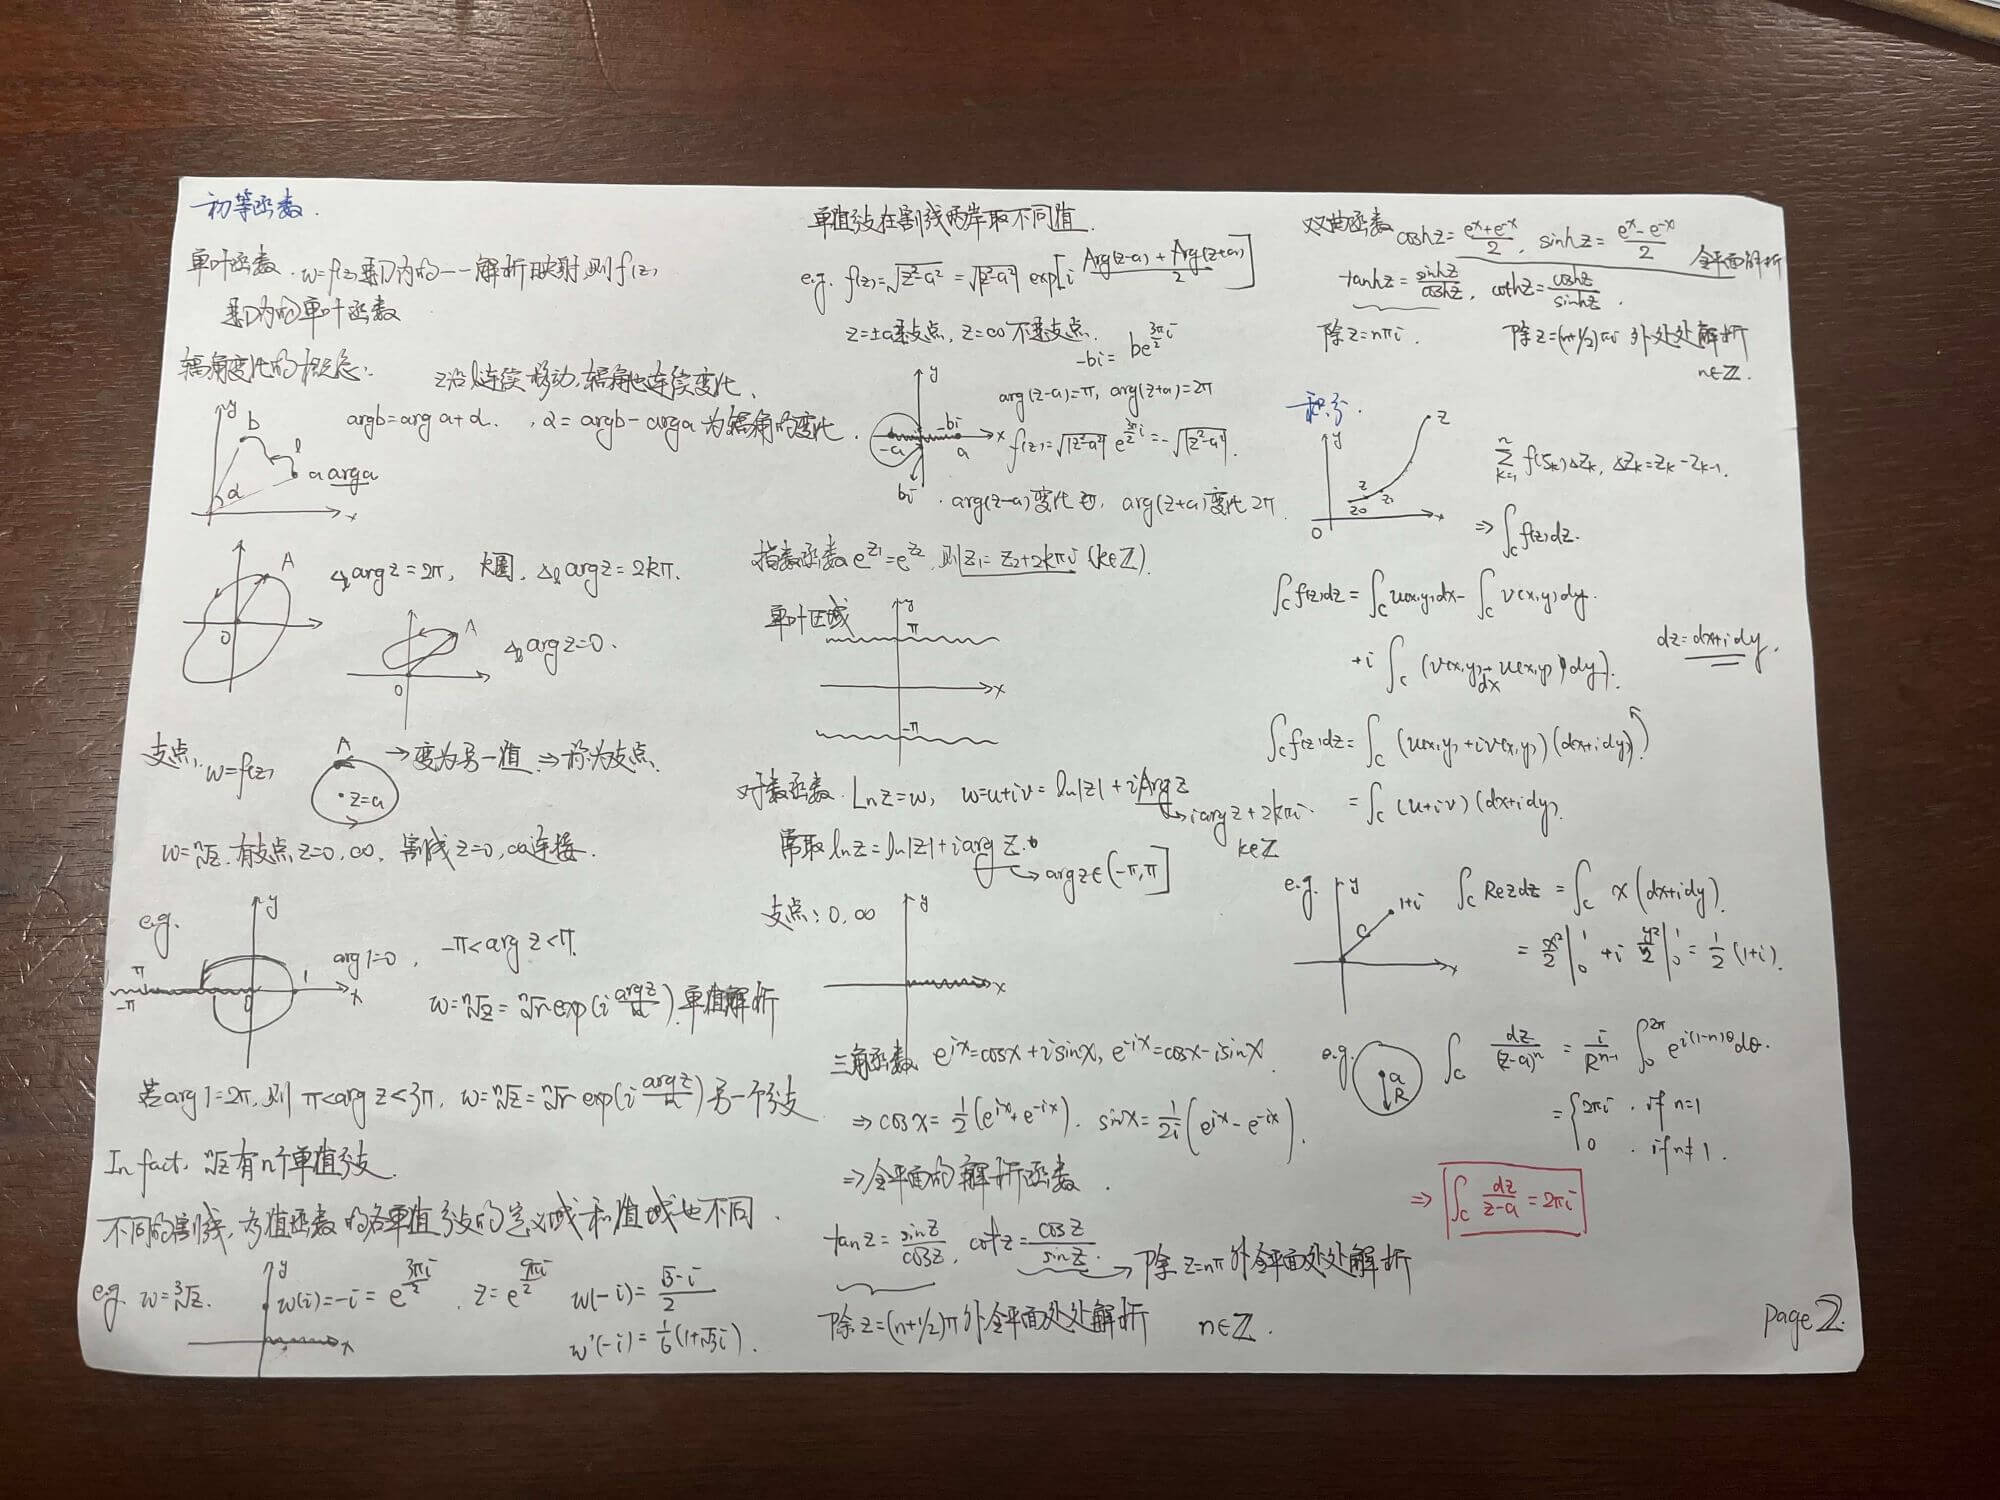 初等函数.
单叶函数. w=f(z)是D内的一一解析映射,则f(z)
是D内的单叶函数
辐角变化的概念:
z沿l连续移动,辐角也连续变化.
argb=arg a+α. , α=argb-arga为辐角的变化.
y
b
l
a arga
α
x
A
0
Δ_l argz=2π, k圈, Δ_l argz=2kπ.
A
0
Δ_l argz=0.
支点: w=f(z)
A
·z=a
→变为另一值⇒称为支点.
w=ⁿ√z 有支点z=0,∞, 割线z=0,∞连接.
e.g.
y
π
-π
0
1
x
arg1=0, -π<arg z<π.
w=ⁿ√z=ⁿ√r exp(i argz/n).单值解析
若arg1=2π,则 π<arg z<3π, w=ⁿ√z=ⁿ√r exp(i argz/n)另一个分支
In fact, ⁿ√z有n个单值分支.
不同的割线,多值函数的各单值分支的定义域和值域也不同.
e.g. w=³√z.
y
x
w(i)=-i=e^(3πi/2). z=e^(9πi/2) w(-i)=(√3-i)/2
w'(-i)=1/6(1+√3i).
单值分支在割线两岸取不同值.
e.g. f(z)=√(z²-a²)=√|z²-a²| exp[i (Arg(z-a)+Arg(z+a))/2]
z=±a是支点, z=∞不是支点.
-bi=be^(3πi/2)
y
-a
-bi
a
x
bi
arg(z-a)=π, arg(z+a)=2π
f(z)=√|z²-a²| e^(3π/2 i)=-√|z²-a²|.
. arg(z-a)变化0, arg(z+a)变化2π
指数函数 e^z₁=e^z₂,则z₁=z₂+2kπi (k∈ℤ).
单叶区域
y
π
x
-π
对数函数. Lnz=w, w=u+iv=ln|z|+iArgz
→iargz+2kπi.
k∈ℤ
常取lnz=ln|z|+iarg z.
→argz∈(-π,π]
支点:0,∞
y
x
三角函数 e^(ix)=cosx+isinx, e^(-ix)=cosx-isinx.
⇒cosx=1/2(e^(ix)+e^(-ix)). sinx=1/2i(e^(ix)-e^(-ix)).
⇒全平面的解析函数.
tanz=sinz/cosz, cotz=cosz/sinz. →除z=nπ外全平面处处解析
除z=(n+1/2)π外全平面处处解析 n∈ℤ.
双曲函数 coshz=(e^x+e^-x)/2, sinhz=(e^x-e^-x)/2 全平面解析
tanhz=sinhz/coshz, cothz=coshz/sinhz.
除z=nπi. 除z=(n+1/2)πi外处处解析
n∈ℤ.
积分.
y
z
z
z0
z₁
0
x
Σ_(k=1)^n f(ζk)Δzk, Δzk=zk-zk-1.
⇒∫_C f(z)dz.
∫_C f(z)dz=∫_C u(x,y)dx-∫_C v(x,y)dy.
+i∫_C (v(x,y)dx+u(x,y)dy).
dz=dx+idy.
∫_C f(z)dz=∫_C (u(x,y)+iv(x,y))(dx+idy)
=∫_C (u+iv)(dx+idy).
e.g.
y
1+i
C
x
∫_C Rezdz=∫_C x(dx+idy).
=x²/2|₀¹+i y²/2|₀¹=1/2(1+i).
e.g.
a
R
∫_C dz/(z-a)^n=i/R^(n-1) ∫₀^(2π) e^(i(1-n)θ)dθ.
={2πi. if n=1
0 . if n≠1.
⇒ ∫_C dz/(z-a)=2πi
page2.